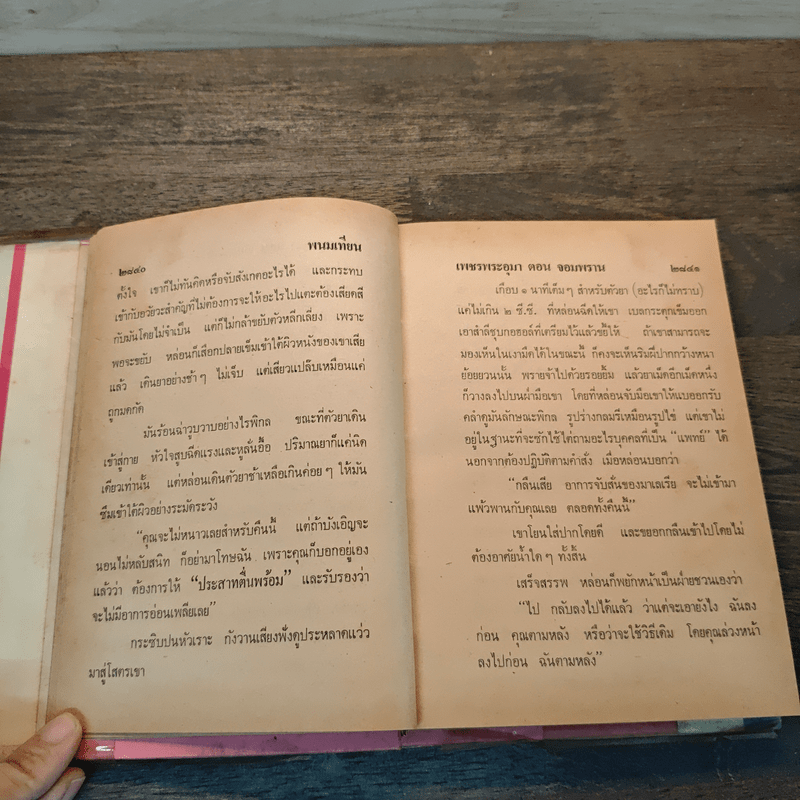 ๒๘๔๐
พนมเทียน
ตั้งใจ เขาก็ไม่ทันคิดหรือจับสังเกตอะไรได้ และกระทบ
เข้ากับอวัยวะสำคัญที่ไม่ต้องการจะให้อะไรไปแตะต้องเสียดสี
กับมันโดยไม่จำเป็น แต่ก็ไม่กล้าขยับตัวหลีกเลี่ยง เพราะ
พอจะขยับ หล่อนก็เสือกปลายเข็มเข้าใต้ผิวหนังของเขาเสีย
แล้ว เดินยาอย่างช้าๆ ไม่เจ็บ แต่เสียวแปลีบเหมือนแค่
ถูกมดกัด
มันร้อนฉ่าวูบวาบอย่างไรพิกล ขณะที่ตัวยาเดิน
เข้าสู่กาย หัวใจสูบฉีดแรงและหูลั่นอื้อ ปริมาณยาก็แค่นิด
เดียวเท่านั้น แต่หล่อนเดินตัวยาช้าเหลือเกินค่อยๆ ให้มัน
ซึมเข้าใต้ผิวอย่างระมัดระวัง
“คุณจะไม่หนาวเลยสำหรับคืนนี้ แต่ถ้าบังเอิญจะ
นอนไม่หลับสนิท ก็อย่ามาโทษฉัน เพราะคุณก็บอกอยู่เอง
แล้วว่า ต้องการให้ “ประสาทตื่นพร้อม” และรับรองว่า
จะไม่มีอาการอ่อนเพลียเลย”
กระซิบปนหัวเราะ กังวานเสียงฟังดูประหลาดแว่ว
มาสู่โสตรเขา
เพชรพระอุมา ตอน จอมพราน
๒๘๔๑
เกือบ ๑ นาทีเต็มๆ สำหรับตัวยา (อะไรก็ไม่ทราบ)
แต่ไม่เกิน ๒ ซี.ซี. ที่หล่อนฉีดให้เขา เบลกระตุกเข็มออก
เอาสำลีชุบกอฮอล์ที่เตรียมไว้แล้วขยี้ให้ ถ้าเขาสามารถจะ
มองเห็นในเงามืดได้ในขณะนี้ ก็คงจะเห็นริมฝีปากกว้างหนา
ย้อยยวนนั้น พรายจ้าไปด้วยรอยยิ้ม แล้วยาเม็ดอีกเม็ดหนึ่ง
ก็วางลงไปบนฝ่ามือเขา โดยที่หล่อนจับมือเขาให้แบออกรับ
คลำดูมันลักษณะพิกล รูปร่างกลมรีเหมือนรูปไข่ แต่เขาไม่
อยู่ในฐานะที่จะซักไซ้ไต่ถามอะไรบุคคลที่เป็น “แพทย์” ได้
นอกจากต้องปฏิบัติตามคำสั่ง เมื่อหล่อนบอกว่า
“กลืนเสีย อาการจับสั่นของมาเลเรีย จะไม่เข้ามา
แพ้วพานกับคุณเลย ตลอดทั้งคืนนี้”
เขาโยนใส่ปากโดยดี และขยอกกลืนเข้าไปโดยไม่
ต้องอาศัยน้ำใดๆ ทั้งสิ้น
เสร็จสรรพ หล่อนก็พยักหน้าเป็นฝ่ายชวนเองว่า
“ไป กลับลงไปได้แล้ว ว่าแต่จะเอายังไง ฉันลง
ก่อน คุณตามหลัง หรือว่าจะใช้วิธีเดิม โดยคุณล่วงหน้า
ลงไปก่อน ฉันตามหลัง”